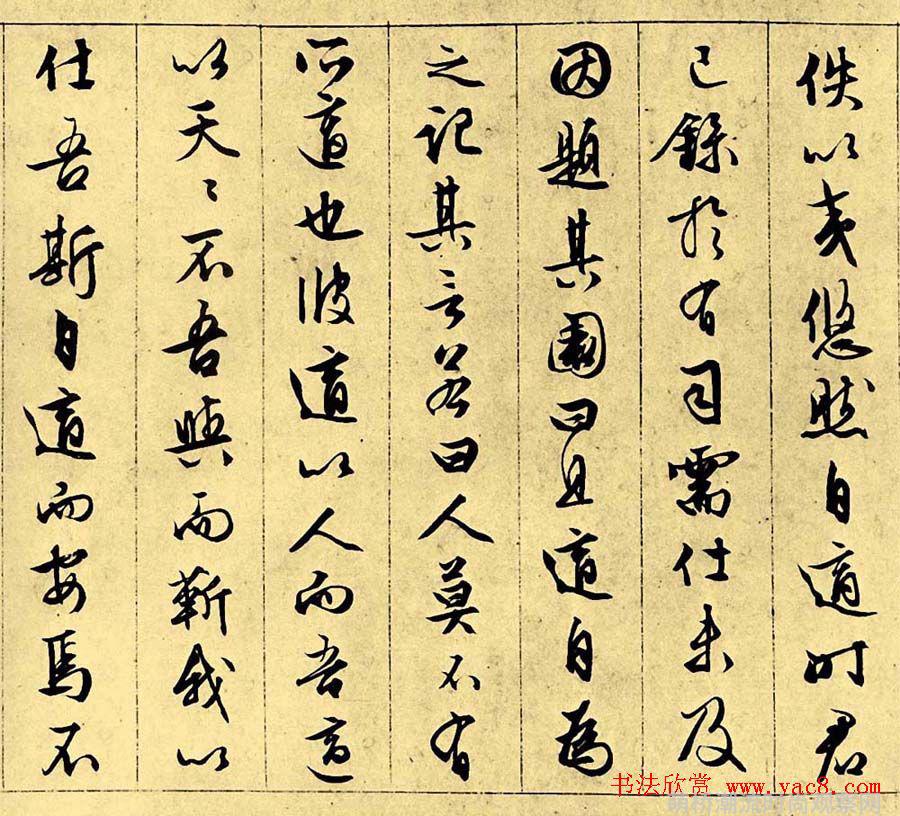 佚以夷悠然自適時君
已錄於有司需仕未及
因題其園曰且適自為
之記其言若曰人莫不有
所適也彼適以人而吾適
以天〻不吾與而蘄我以
仕吾斯自適而安焉不
书法欣赏 www.yac8.com